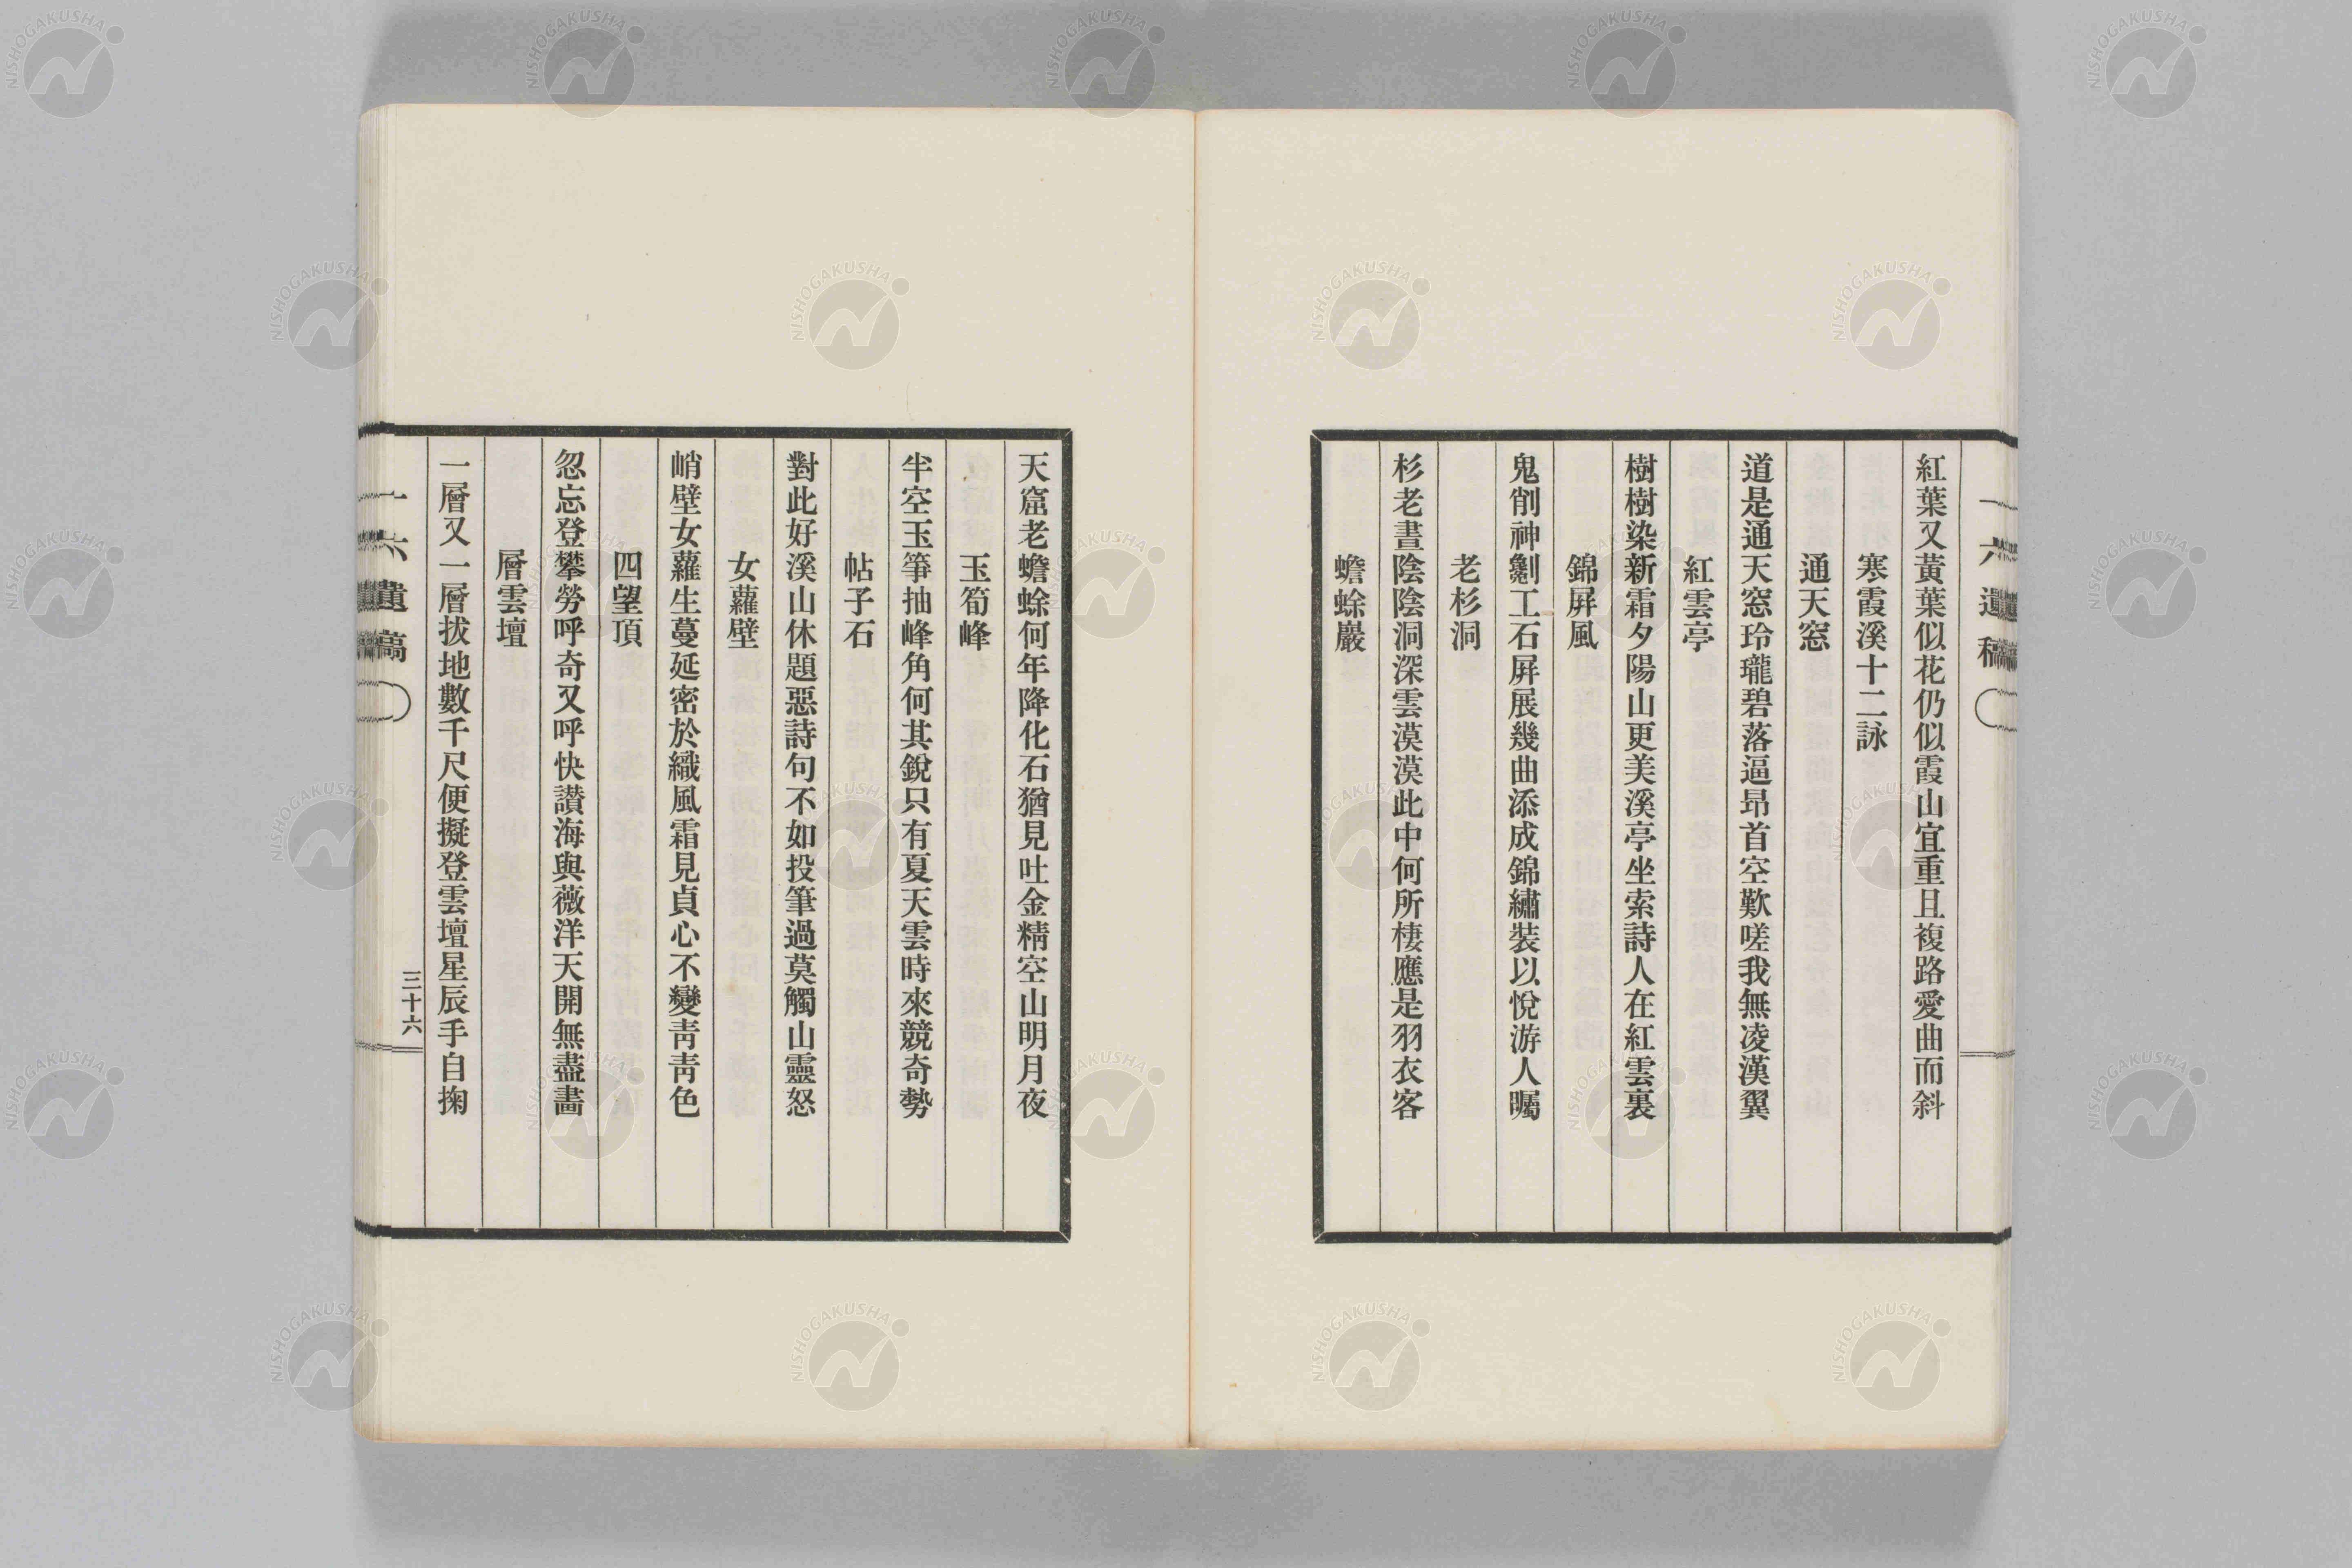 一六遺稿
紅葉又黃葉似花仍似霞山宜重且複路愛曲而斜
寒霞溪十二詠
通天窓
道是通天窓玲瓏碧落逼昻首空歎嗟我無凌漢翼
紅雲亭
樹樹染新霜夕陽山更美溪亭坐索詩人在紅雲裏
錦屛風
鬼削神劖工石屛展幾曲添成錦繡裝以悅游人矚
老杉洞
杉老晝陰陰洞深雲漠漠此中何所棲應是羽衣客
蟾蜍巖
天窟老蟾蜍何年降化石猶見吐金精空山明月夜
玉筍峰
半空玉筝抽峰角何其銳只有夏天雲時來競奇勢
帖子石
對此好溪山休題惡詩句不如投筆過莫觸山靈怒
女蘿壁
峭壁女蘿生蔓延密於織風霜見貞心不變靑靑色
四望頂
忽忘登攀勞呼奇又呼快讃海與薇洋天開無盡畵
層雲壇
一層又一層拔地數千尺便擬登雲壇星辰手自掬
一六遺稿
三十六
NISHOGAKUSHA